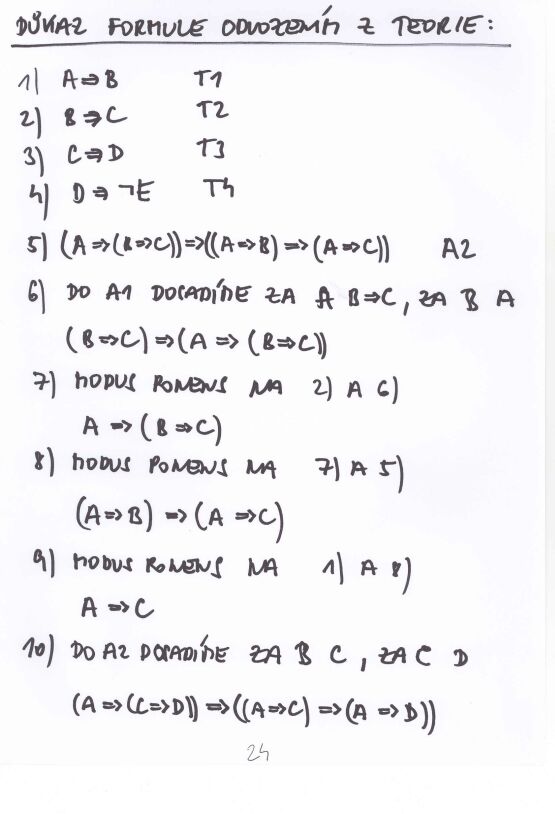 DŮKAZ FORMULE ODVOZENÍM Z TEORIE:
1) A⇒B T1
2) B⇒C T2
3) C⇒D T3
4) D⇒¬E T4
5) (A⇒(B⇒C))⇒((A⇒B)⇒(A⇒C)) A2
6) DO A1 DOSADÍME ZA A B⇒C, ZA B A
(B⇒C)⇒(A⇒(B⇒C))
7) MODUS PONENS NA 2) A 6)
A⇒(B⇒C)
8) MODUS PONENS NA 7) A 5)
(A⇒B)⇒(A⇒C)
9) MODUS PONENS NA 1) A 8)
A⇒C
10) DO A2 DOSADÍME ZA B C, ZA C D
(A⇒(C⇒D))⇒((A⇒C)⇒(A⇒D))
24